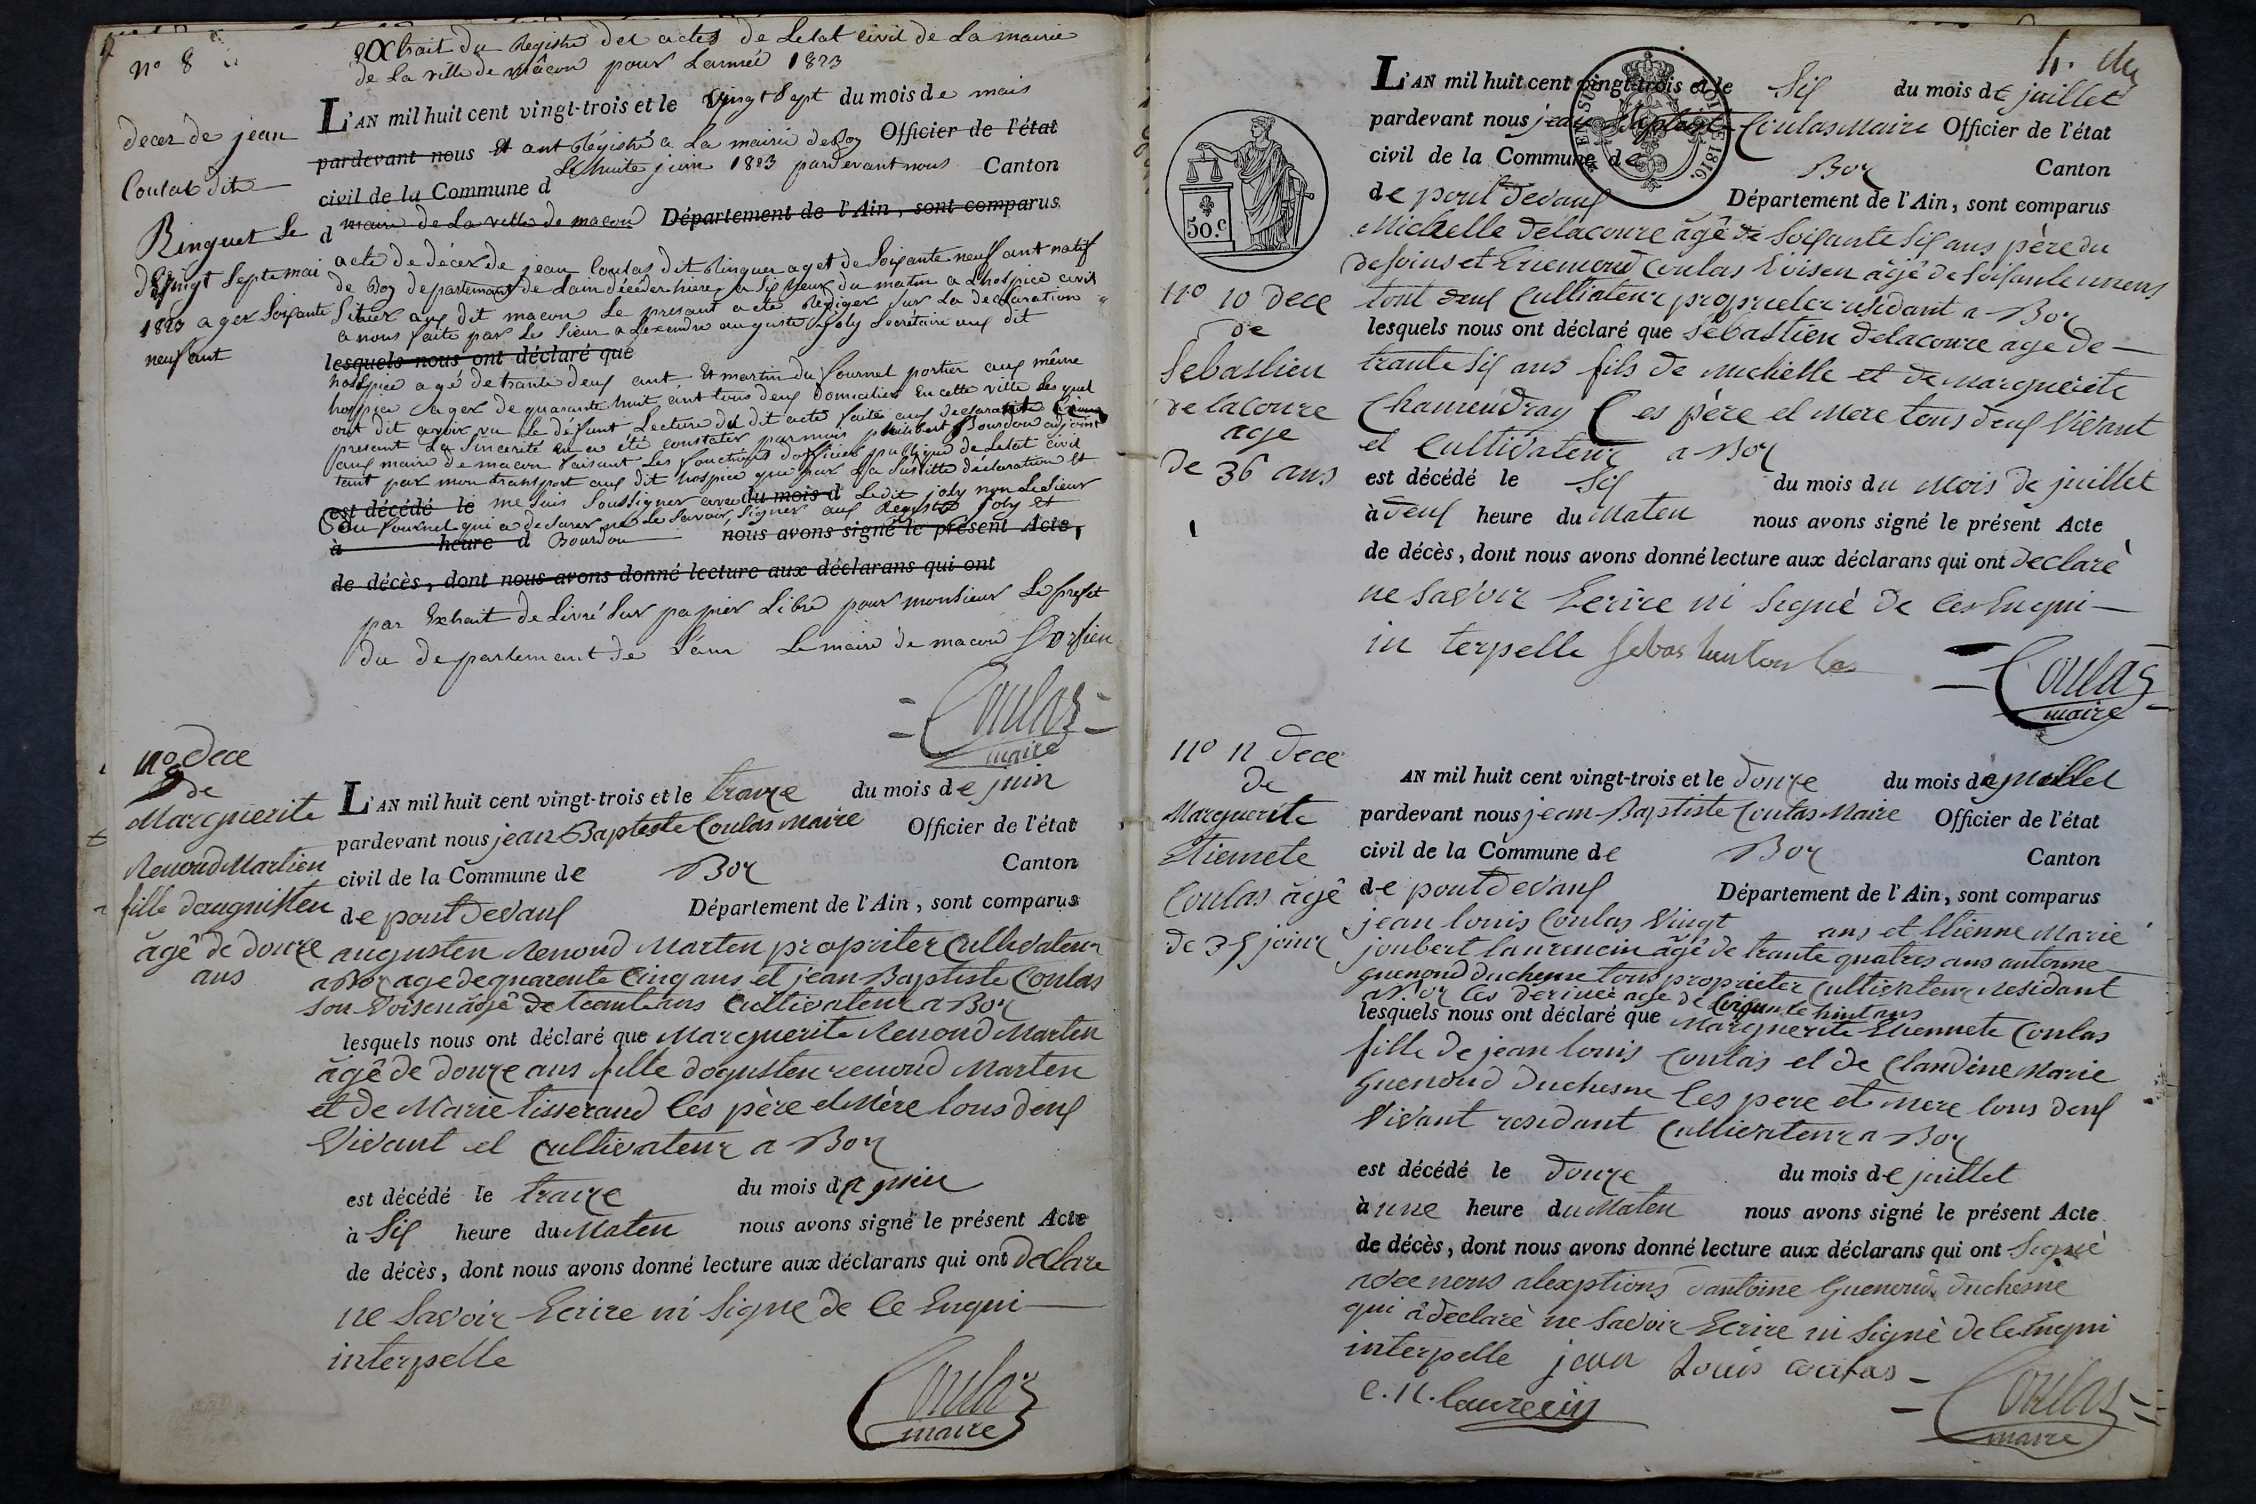 n° 8
Extrait du Registre des actes de Letat civil de La mairie
de La ville de mâcon pour Lannée 1823
L'AN mil huit cent vingt-trois et le vingt Sept du mois de mais
pardevant nous Et ant Régistré a La mairie de Boz Officier de l'état
Le huite juin 1823 pardevant nous
civil de la Commune d Canton
d maire de La ville de macon Département de l'Ain, sont comparus
acte de décer de jean Coulas dit Ringuer aget de Soixante neuf ant natif
de Boz departemant de Lain décéder hiere a Six heur du matin a Lhospice civil
Situer aux dit macon Le presant acte Rediger Sur La declaration
a nous faite par Les Sieur alexendre auguste Joly Secretaire aux dit
lesquels nous ont déclaré que
hospice agé de trante deux ant Et martin du fournel portier aux même
hospice ager de quarante huit ant tous deux Domicilier En cette ville Les quel
ont dit avoir vu Le défunt Lecture du dit acte faite aux declarant
present La Sincerité en a été constater par mois philibert Bourdon adjoint
aux maire de macon faisant Les fonctions dofficier publique de Letat civil
tant par mon transport aux dit hospice que par La Susditte déclaration Et
est décédé le me Suis Soussigner avec du mois d Ledit joly non Le Sieur
du fournel qui a declarer ne Le Savoir, Signer aux Registre joly et
à heure d Bourdon nous avons signé le présent Acte,
de décès, dont nous avons donné lecture aux déclarans qui ont
par Extrait de Livré Sur papier Libre pour monsieur Le prefet
du departemant de L'ain Le maire de macon
Coulas
maire
decer de jean
Coulas dit
Ringuet Le
Vingt Septe mai
1823 ager Soixante
neuf ant
n° 9 Dece
de
Marguerite
Renoud Martien
fille daugnisten
âgê de douze
ans
L'AN mil huit cent vingt-trois et le traize du mois de juin
pardevant nous jean Baptiste Coulas Maire Officier de l'état
civil de la Commune de Boz Canton
de pont Devaux Département de l'Ain, sont comparus
augusten Renoud Marten propriter Cultivateur
a Boz age de quarente Cinq ans et jean Baptiste Coulas
Son Voisen âgê de trante ans Cultivateur a Boz
lesquels nous ont déclaré que Marguerite Renoud Marten
âgê de douze ans fille dogusten renoud Marten
et de Marie tisserand Ces père et Mère tous deux
Vivant et cultivateur a Boz
est décédé le traize du mois de juin
à Six heure du Maten nous avons signé le présent Acte
de décès, dont nous avons donné lecture aux déclarans qui ont Declare
ne Savoir Ecrire ni Signe de Ce Enqui
interpelle
Coulas
maire
L'AN mil huit cent vingt-trois et le Six du mois de juillet
pardevant nous jean Baptiste Coulas Maire Officier de l'état
civil de la Commune de Boz Canton
de pont Devaux Département de l'Ain, sont comparus
EN SUS
LOI DE 1816.
50.c
Michelle Delacoure âgê de Soixante Six ans père du
defoins et Guemond Coulas Voisen âgê de Soixante un ens
tout deux Cultiateur proprieter residant a Boz
lesquels nous ont déclaré que Sebastien delacoure age de
trante Six ans fils de Michelle et de Marguerite
Chamendray Ces père et Mere tous deux Vivant
et Cultivateur a Boz
est décédé le Six du mois du Mois de juillet
à Deux heure du Maten nous avons signé le présent Acte
de décès, dont nous avons donné lecture aux déclarans qui ont Declarè
ne Savoir Ecrire ni Signé de Ces Enqui
in terpelle Sebastien Coulas
Coulas
maire
n° 10 Dece
de
Sebastien
De lacoure
age
De 36 ans
n° 11 Dece
de
Marguerite
Etiennete
Coulas âgê
de 35 jour
AN mil huit cent vingt-trois et le Douze du mois de juillet
pardevant nous jean Baptiste Coulas Maire Officier de l'état
civil de la Commune de Boz Canton
de pont devaux Département de l'Ain, sont comparus
jean louis Coulas Vingt ans et Etienne Marie
joubert laurencin âgê de trante quatres ans antoine
Guenoud Duchesne tous proprieter Cultivateur residant
a Boz Ces dernier age de Cinquante huit ans
lesquels nous ont déclaré que Marguerite Etiennete Coulas
fille de jean louis Coulas et de Claudine Marie
Guenoud Duchesne Ces pere et Mere tous deux
Vivant residant Cultivateur a Boz
est décédé le Douze du mois de juillet
à une heure du Maten nous avons signé le présent Acte
de décès, dont nous avons donné lecture aux déclarans qui ont Signé
avec nous alexptions dantoine Guenoud Duchesne
qui â declarè ne Savoir Ecrire ni Signè de Ce Enqui
interpelle jean Louis coulas
Coulas
maire